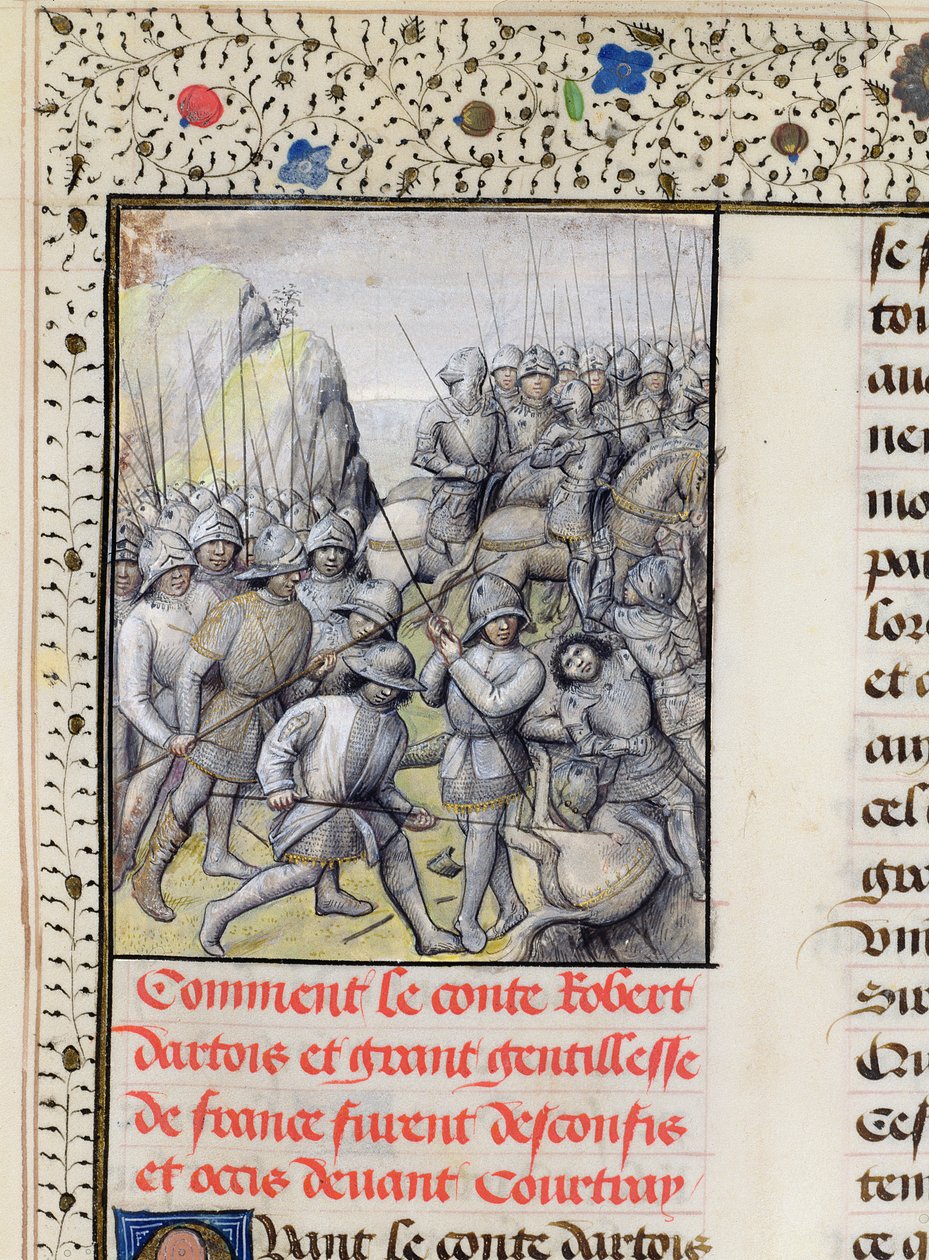 Comment le conte Robert
dartois et grant gentillesse
de france furent desconfis
et occis deuant Courtray
Quant le conte dartois
se s
toi
aua
ner
mo
par
lor
et
au
cel
gra
Vin
Sir
Ces
tem
ce q